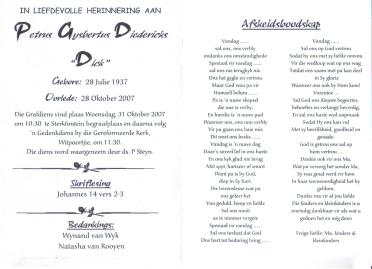 IN LIEFDEVOLLE HERINNERING AAN
Petrus Gysbertus Diedericks
"Dick"
Gebore: 28 Julie 1937
Oorlede: 28 Oktober 2007
Die Grafdiens vind plaas Woensdag, 31 Oktober 2007
om 10:30 te Sterkfontein begraafplaas en daarna volg
'n Gedenkdiens by die Gereformeerde Kerk,
Witpoortjie, om 11:30.
Die diens word waargeneem deur ds. P Steyn.
Skriflesing
Johannes 14 vers 2-3
Bedankings:
Wynand van Wyk
Natasha van Rooyen
Afskeidsboodskap
Vandag ......
sal ons, ons verbly
ondanks ons omstandighede
Spesiaal vir vandag ......
sal ons nie terugkyk nie
Ons het gegee en vertrou
Maar God neem
Homself behou ......
Pa is 'n nuwe skepsel
die nuwe is verby.
En hierdie is 'n nuwe pad
Waarvoor ons, nou ons verbly
Vir pa gaan ons baie mis
Dit weet ons beslis ......
Vandag is 'n nuwe dag
Daar's soveel lief in ons harte
En ons kyk glad nie terug
Met spyt, hartseer of smart
Want pa is by God,
diep in Sy hart.
Die lewenslesse wat pa
ons geleer het
Van geduld, hoop en liefde
Sal ons nooit
as te nimmer vergete
Spesiaal vir vandag ......
Sal ons toelaat dat die
Ons hart tot bedaring bring ......
Vandag ......
Sal ons op God vertrou
Sodat hy ons met sy liefde omvou
Vir die wedloop wat op ons wag
Totdat ons saam met pa kan deel
in Sy glorie
Waarvoor ons ook by Hom kom!
Vandag ......
Sal God ons diepste begeertes,
behoeftes en verlange bevredig
En sal ons harte wyd oopmaak
Sodat Hy ons kan vul
Met sy heerlikheid, goedheid en
genade.
God is getrou ons sal op
hom vertrou ...
Dankie ook vir ons Ma,
Wat pa versorg het sonder kla,
Sy was goud werd vir hom
In haar teenwoordigheid het hy
geblom.
Dankie ma vir al jou liefde
Die kinders en kleinkinders is u
ewig dankbaar vir als wat u
gedoen het en nog doen
Ewige liefde: Ma, kinders &
kleinkinders